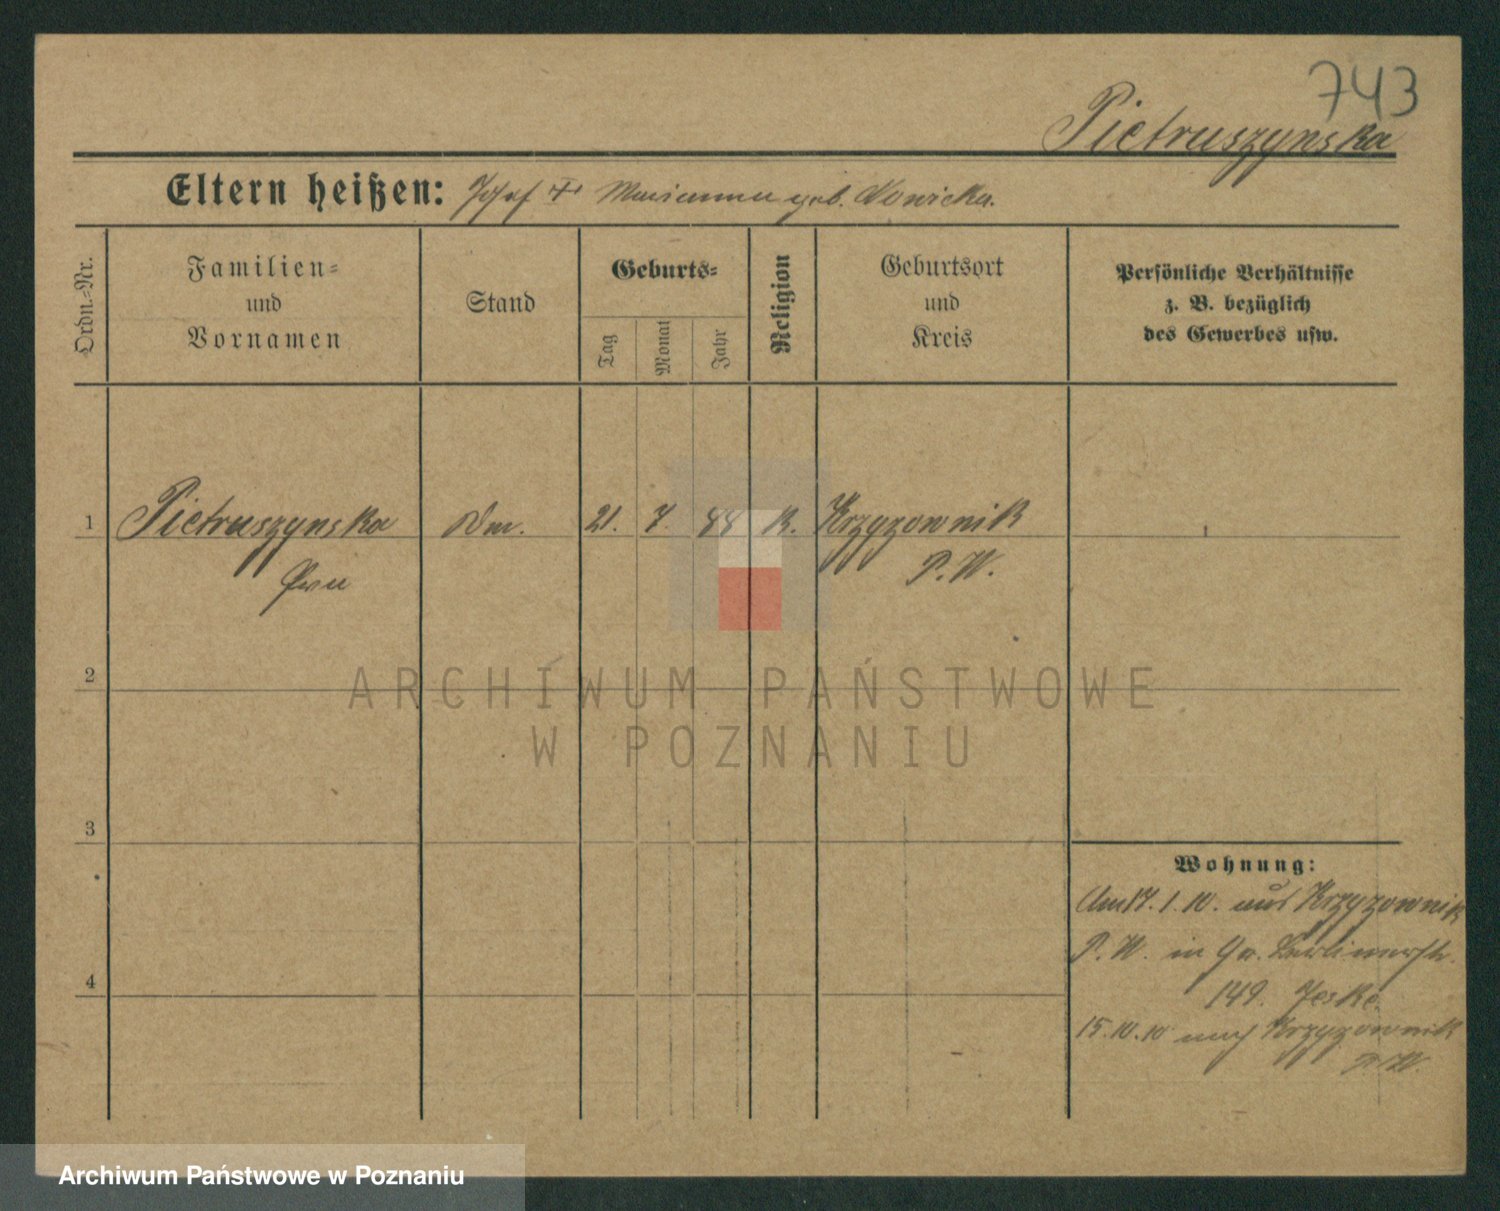 743
Pietruszynska
Eltern heißen: Josef + Marianna geb. Nowicka.
Ordn.-Nr.
Familien-
und
Vornamen
Stand
Geburts-
Tag
Monat
Jahr
Religion
Geburtsort
und
Kreis
Persönliche Verhältnisse
z. B. bezüglich
des Gewerbes usw.
1 Pietruszynska 21. 7. K. Krzyzownik
P. W.
2
3
4
Wohnung:
Am 17. 1. 10. aus Krzyzownik
P. W. in Berlinerstr.
149. Jeske.
15. 10. 10 nach Krzyzownik
P. W.
ARCHIWUM PAŃSTWOWE
W POZNANIU
Archiwum Państwowe w Poznaniu